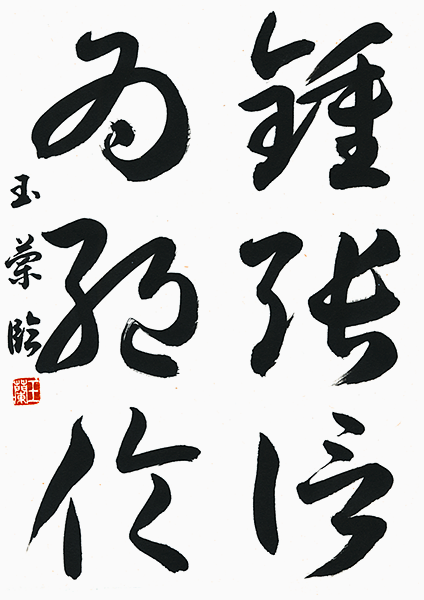 鍾張信
為絕倫
玉蘭臨